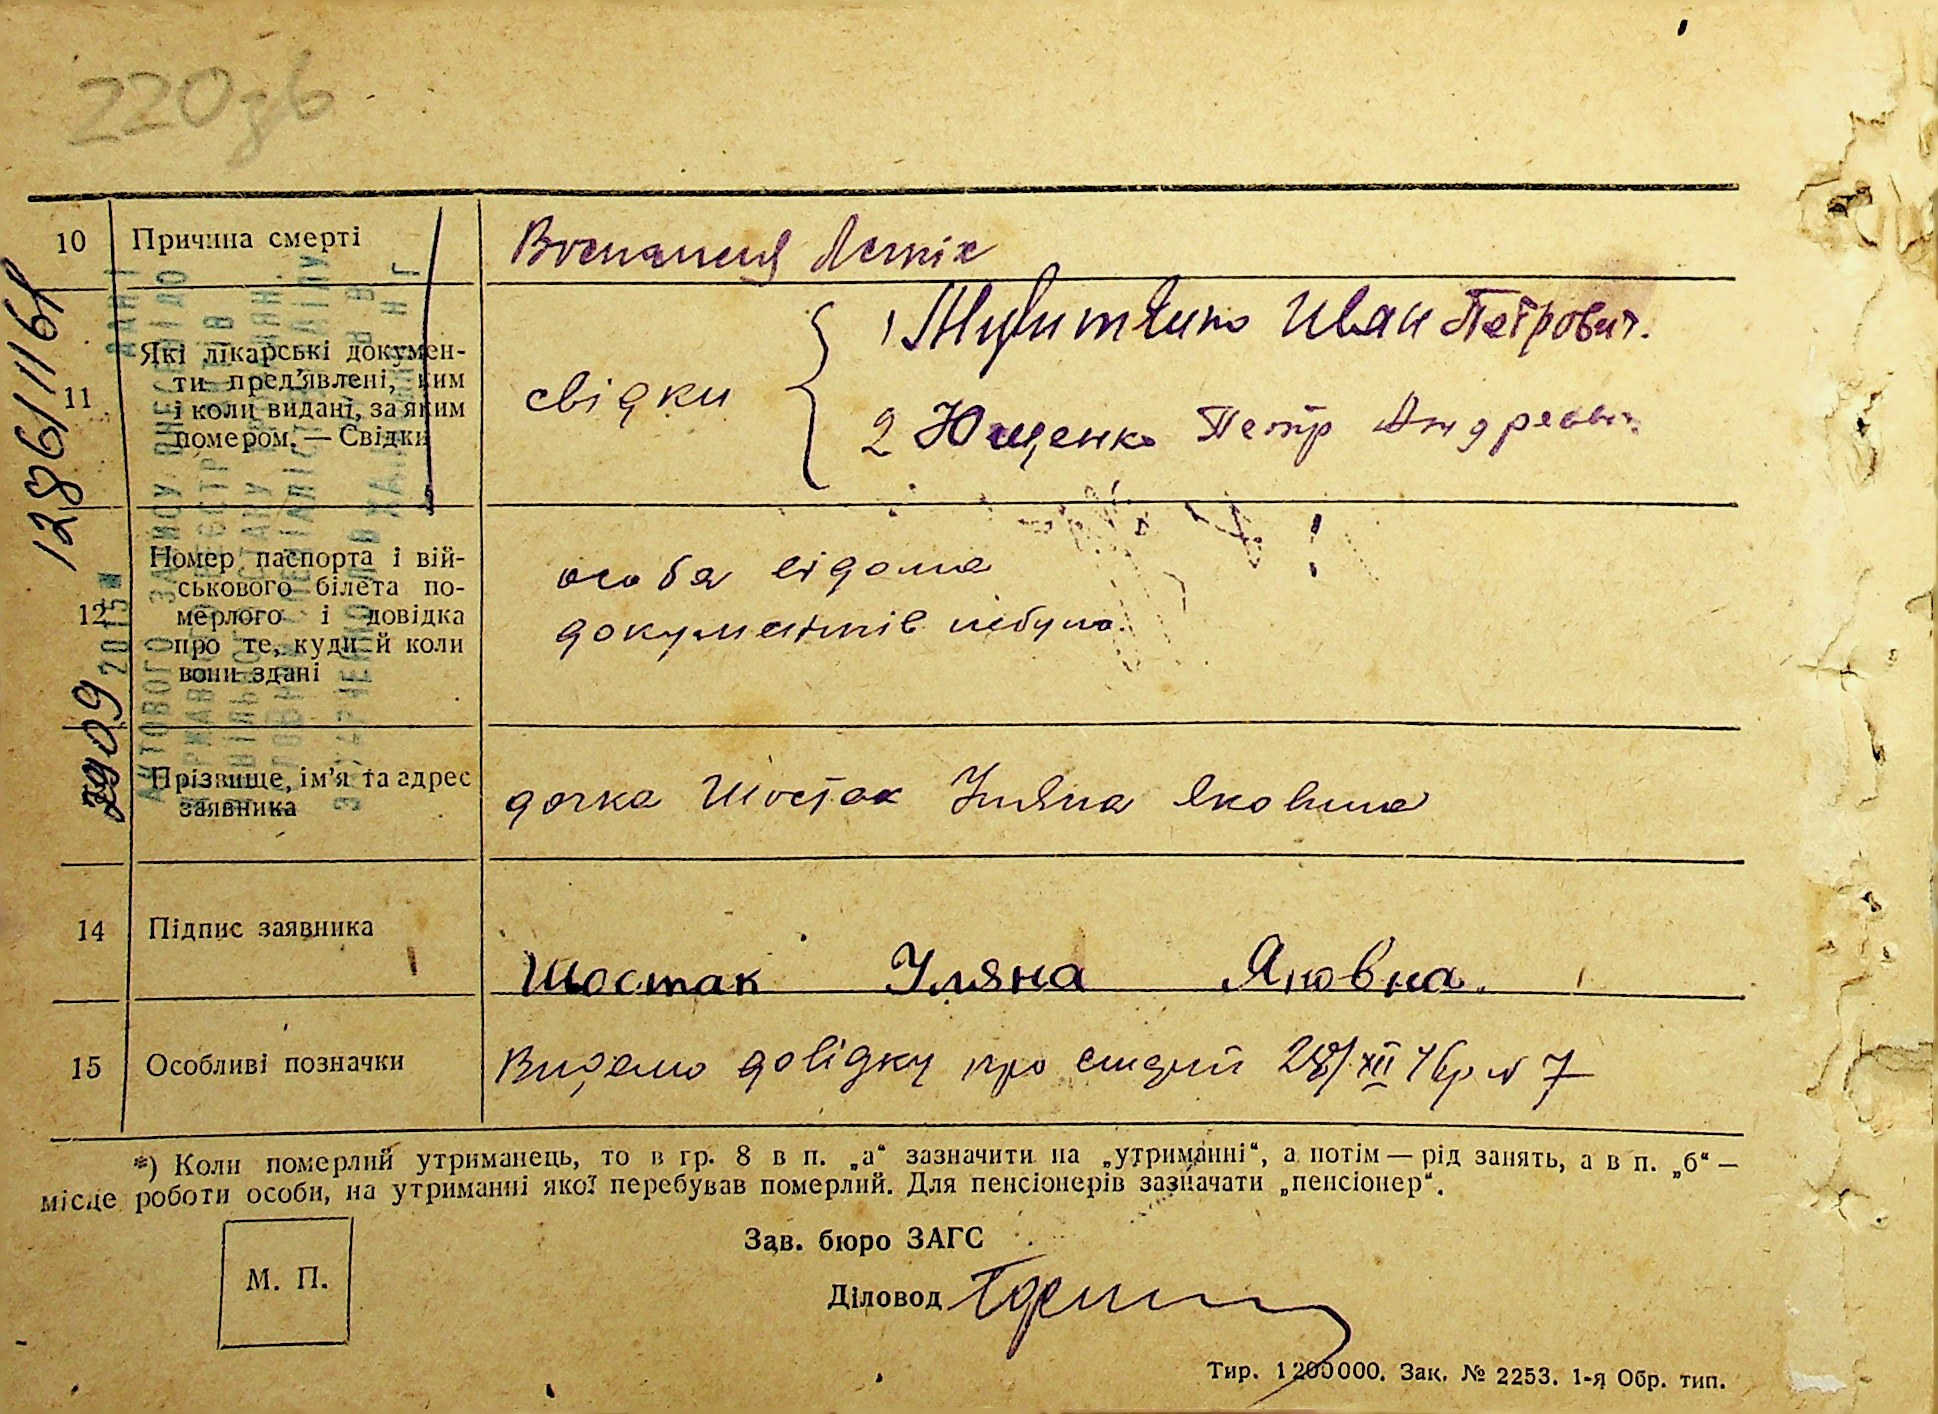 220зв
10 Причина смерті
Воспаленя Легкіх
11 Які лікарські документи пред'явлені, ким
і коли видані, за яким
помером. — Свідки
свідки
1 Иван Петрович.
2 Ющенко Петр Андреевич
12 Номер паспорта і вій-
ськового білета по-
мерлого і довідка
про те, куди й коли
вони здані
особа відома
документів небуло.
Прізвище, ім'я та адрес
заявника
дочка Шостак Уляна Яковна
14 Підпис заявника
Шостак Уляна Яковна.
15 Особливі позначки
Видано довідку про смерть 28/XII № 7
*) Коли померлий утриманець, то в гр. 8 в п. „а“ зазначити на „утриманні“, а потім — рід занять, а в п. „б“ —
місце роботи особи, на утриманні якої перебував померлий. Для пенсіонерів зазначати „пенсіонер“.
Зав. бюро ЗАГС
М. П.
Діловод
Тир. 1200000. Зак. № 2253. 1-я Обр. тип.